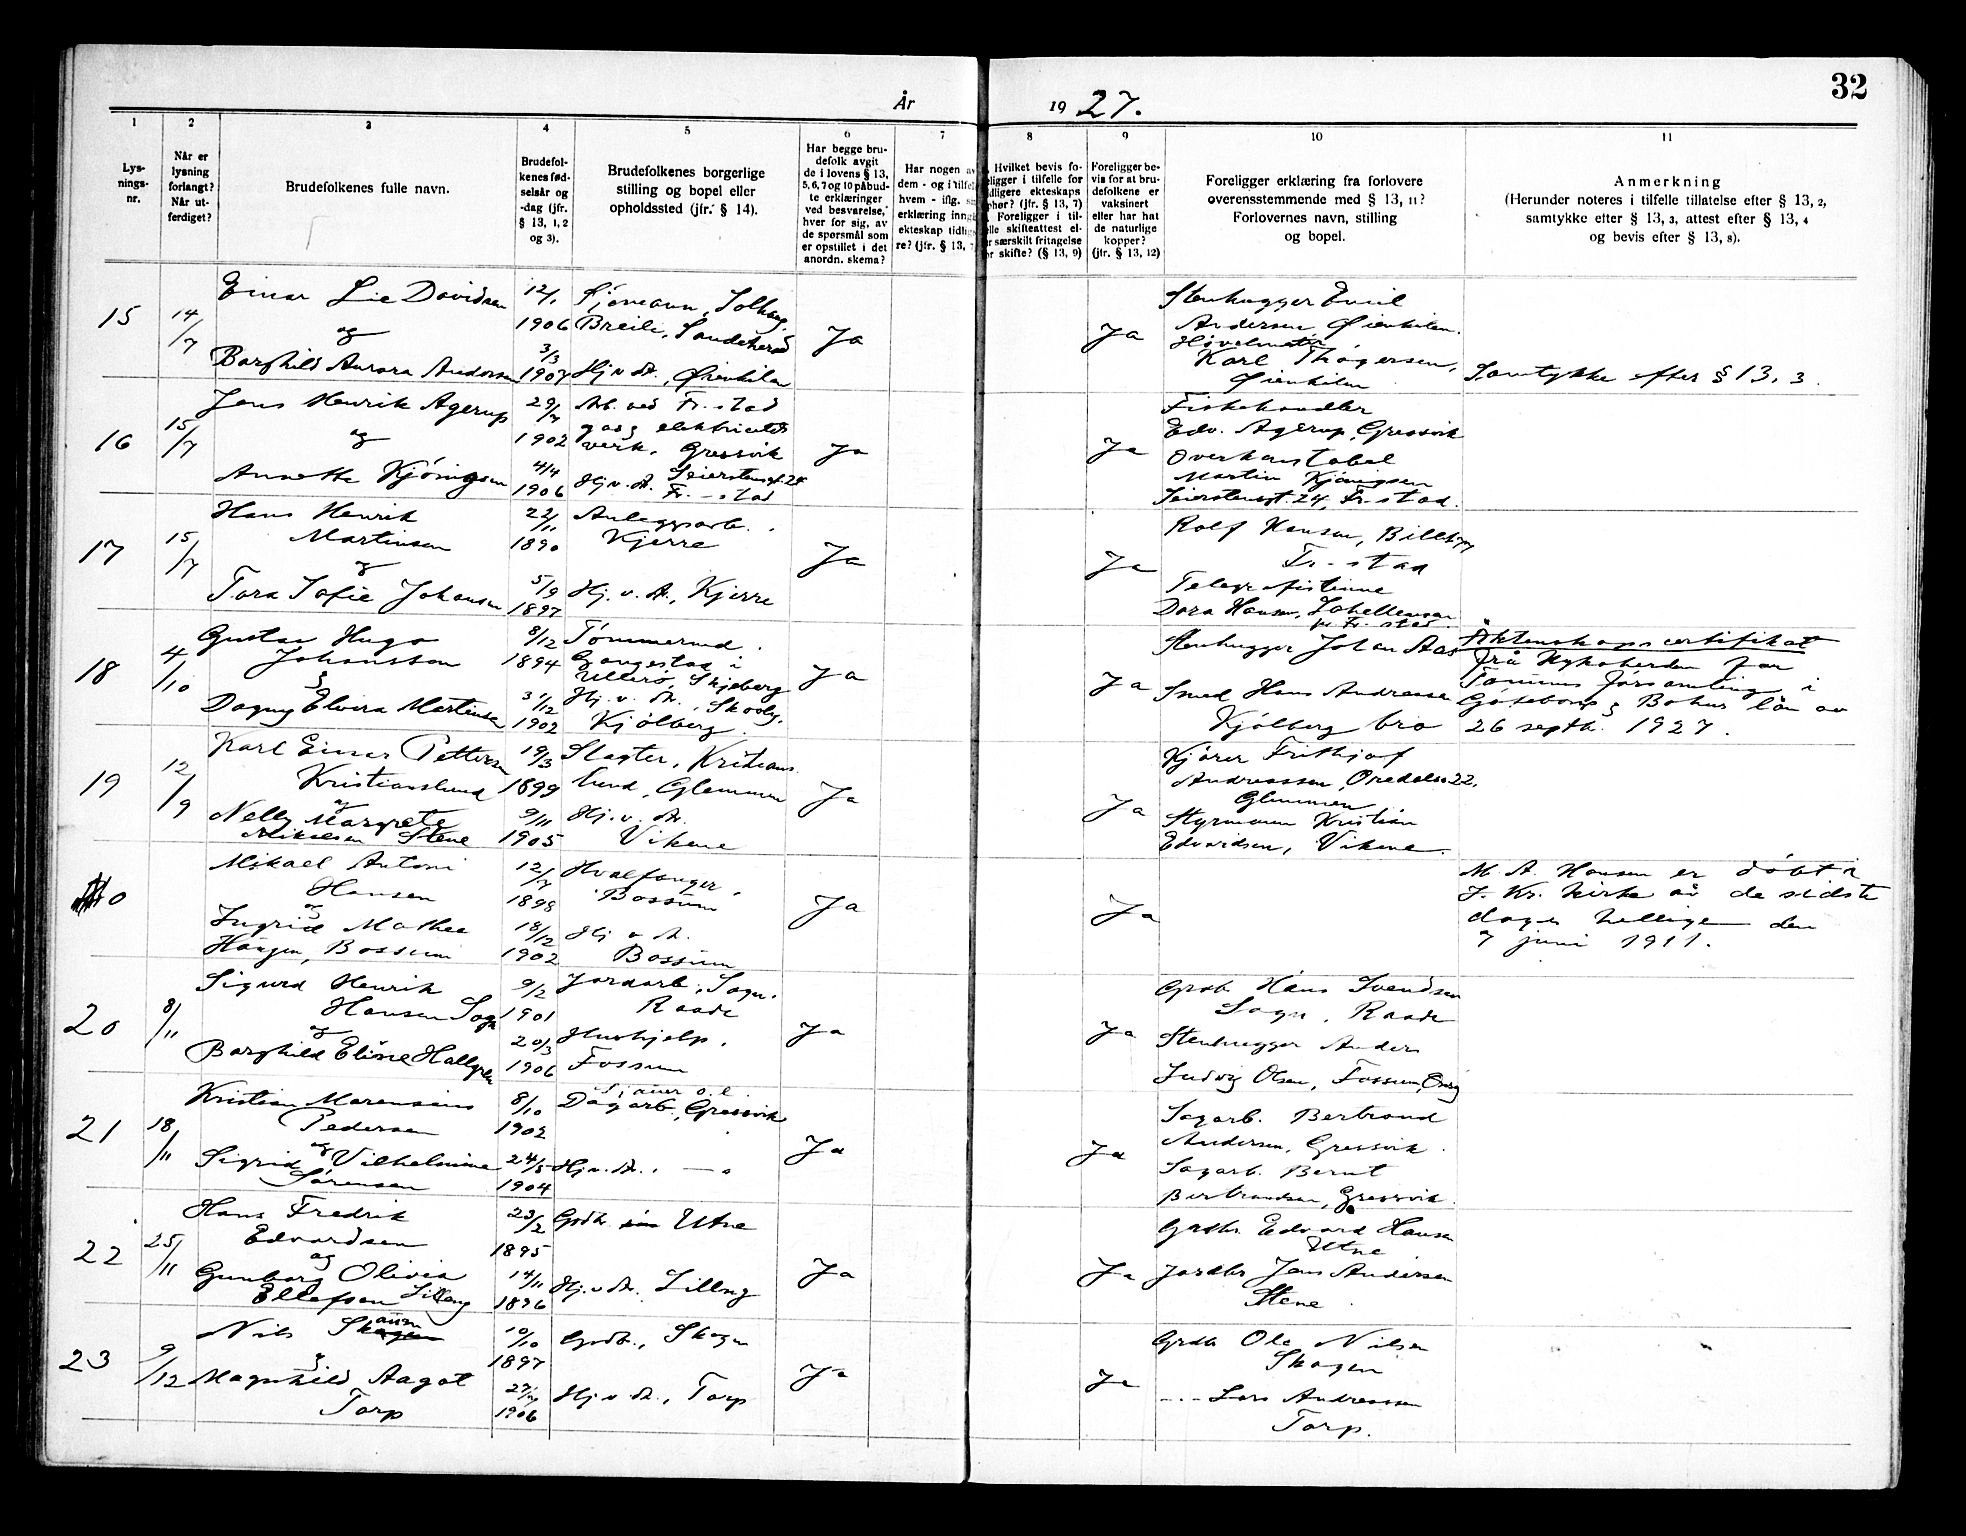 32
År 1927.
1
2
3
4
5
6
7
8
9
10
11
Lys-
nings-
nr.
Når er
lysning
forlangt?
Når ut-
ferdiget?
Brudefolkenes fulle navn.
Brudefol-
kenes fød-
selsår og
-dag (jfr.
§ 13, 1, 2
og 3).
Brudefolkenes borgerlige
stilling og bopel eller
opholdssted (jfr. § 14).
Har begge bru-
defolk avgit
de i lovens § 13,
5, 6, 7 og 10 påbud-
te erklæringer
ved besvarelse,
hver for sig, av
de spørsmål som
er opstillet i det
anordn. skema?
Har nogen av
dem - og i tilfel
hvem - iflg. s
erklæring inng
ekteskap tidlig
re? (jfr. § 13,
Hvilket bevis fo-
eligger i tilfelle for
idligere ekteskaps
phør? (jfr. § 13, 7)
Foreligger i til-
elle skifteattest el-
r særskilt fritagelse
or skifte? (§ 13, 9)
Foreligger be-
vis for at bru-
defolkene er
vaksinert
eller har hat
de naturlige
kopper?
(jfr. § 13, 12)
Foreligger erklæring fra forlovere
overensstemmende med § 13, 11?
Forlovernes navn, stilling
og bopel.
Anmerkning
(Herunder noteres i tilfelle tillatelse efter § 13, 2,
samtykke efter § 13, 3, attest efter § 13, 4
og bevis efter § 13, 8).
15
14/7
Einar Lie Davidsen
og
Borghild Aurora Andersen
12/1
1906
3/3
1907
Sjømann, Solhaug,
Breili, Sandeherad
Hj v. A., Øienkilen
Ja
Ja
Stenhugger Emil
Andersen Øienkilen.
Høvelmester
Karl Thøgersen,
Øienkilen
Samtykke efter § 13, 3.
16
15/7
Jens Henrik Agerup
og
Annette Kjönigsen
29/7
1902
4/4
1906
Arb. ved Fr.-stad
gas og elektricitets
verk, Gressvik
Hj v. A. Seierstensgt. 24
Fr.-stad
Ja
Ja
Fiskehandler
Edv. Agerup, Gressvik
Overkonstabel
Martin Kjönigsen
Seierstensgt. 24, Fr.stad.
17
15/7
Hans Henrik
Martinsen
og
Tora Sofie Johansen
22/11
1890
5/9
1897
Anleggsarb.
Kjerre
Hj. v. A., Kjerre
Ja
Ja
Rolf Hansen,
Fr.-stad
Telegrafistinne
Dora Hansen,
pr. Fr.stad.
18
4/10
Gustav Hugo
Johansson
&
Dagny Elvira Martinsen
8/12
1894
31/12
1902
Tömmermd.
Gangestad i
Ullerö, Skjeberg
Hj. v. A., Skovby,
Kjölberg.
Ja
Ja
Stenhugger Johan Aas
Smed Hans Andreassen
Kjölberg bro
Äktenskapscertifikat
frå Kyrkoherden för
Tanums församling i
Göteborgs & Bohus län av
26 septbr. 1927.
19
12/9
Karl Einar Pettersen
Kristianslund
og
Nelly Margrete
Mikalsen Stene
19/3
1899
9/11
1905
Slagter, Kristians
lund, Glemmen
Hj. v. A.
Vikene
Ja
Ja
Kjører Frithjof
Andreassen, Oredalen 22,
Glemmen
Styrmann Kristian
Edvardsen, Vikene.
0
Mikael Antoni
Hansen
og
Ingrid Mathea
Haugen, Bossum
12/7
1898
18/12
1902
Hvalfanger,
Bossum
Hj v A.
Bossum
Ja
Ja
M. A. Hansen er döbt i
J. Kr. kirke av de sidste
dages hellige den
7 juni 1911.
20
8/11
Sigurd Henrik
Hansen Sogn
og
Borghild Eline Hallgren
9/2
1901
20/3
1906
Jordarb., Sogn,
Raade
Hushjelp,
Fossum
Ja
Ja
Grdb. Hans Svendsen
Sogn, Raade
Stenhugger Anders
Ludvig Olsen, Fossum, Onsøy
21
18/11
Kristian Marensius
Pedersen
og
Sigrid Vilhelmine
Sørensen
8/10
1902
24/5
1904
Sjauer o. l.
Dagarb., Gressvik
Hj v. A., — "
Ja
Ja
Sagarb. Bertrand
Andersen, Gressvik.
Sagarb. Bernt
Bertrandsen, Gressvik.
22
25/11
Hans Fredrik
Edvardsen
og
Gunborg Olivia
Ellefsen Lilleng
23/2
1895
14/11
1896
Grdbr. Utne
Hj. v A., Lilleng
Ja
Ja
Grdbr. Edvard Hansen
Utne
Jordbr Jens Andersen
Stene.
23
9/12
Nils Skauen
&
Magnhild Aagot
Torp
10/10
1897
1906
Grdb., Skogen
Hj. v. A., Torp
Ja
Ja
Grdb Ole Nilsen
Skogen
---- Lars Andreassen
Torp.